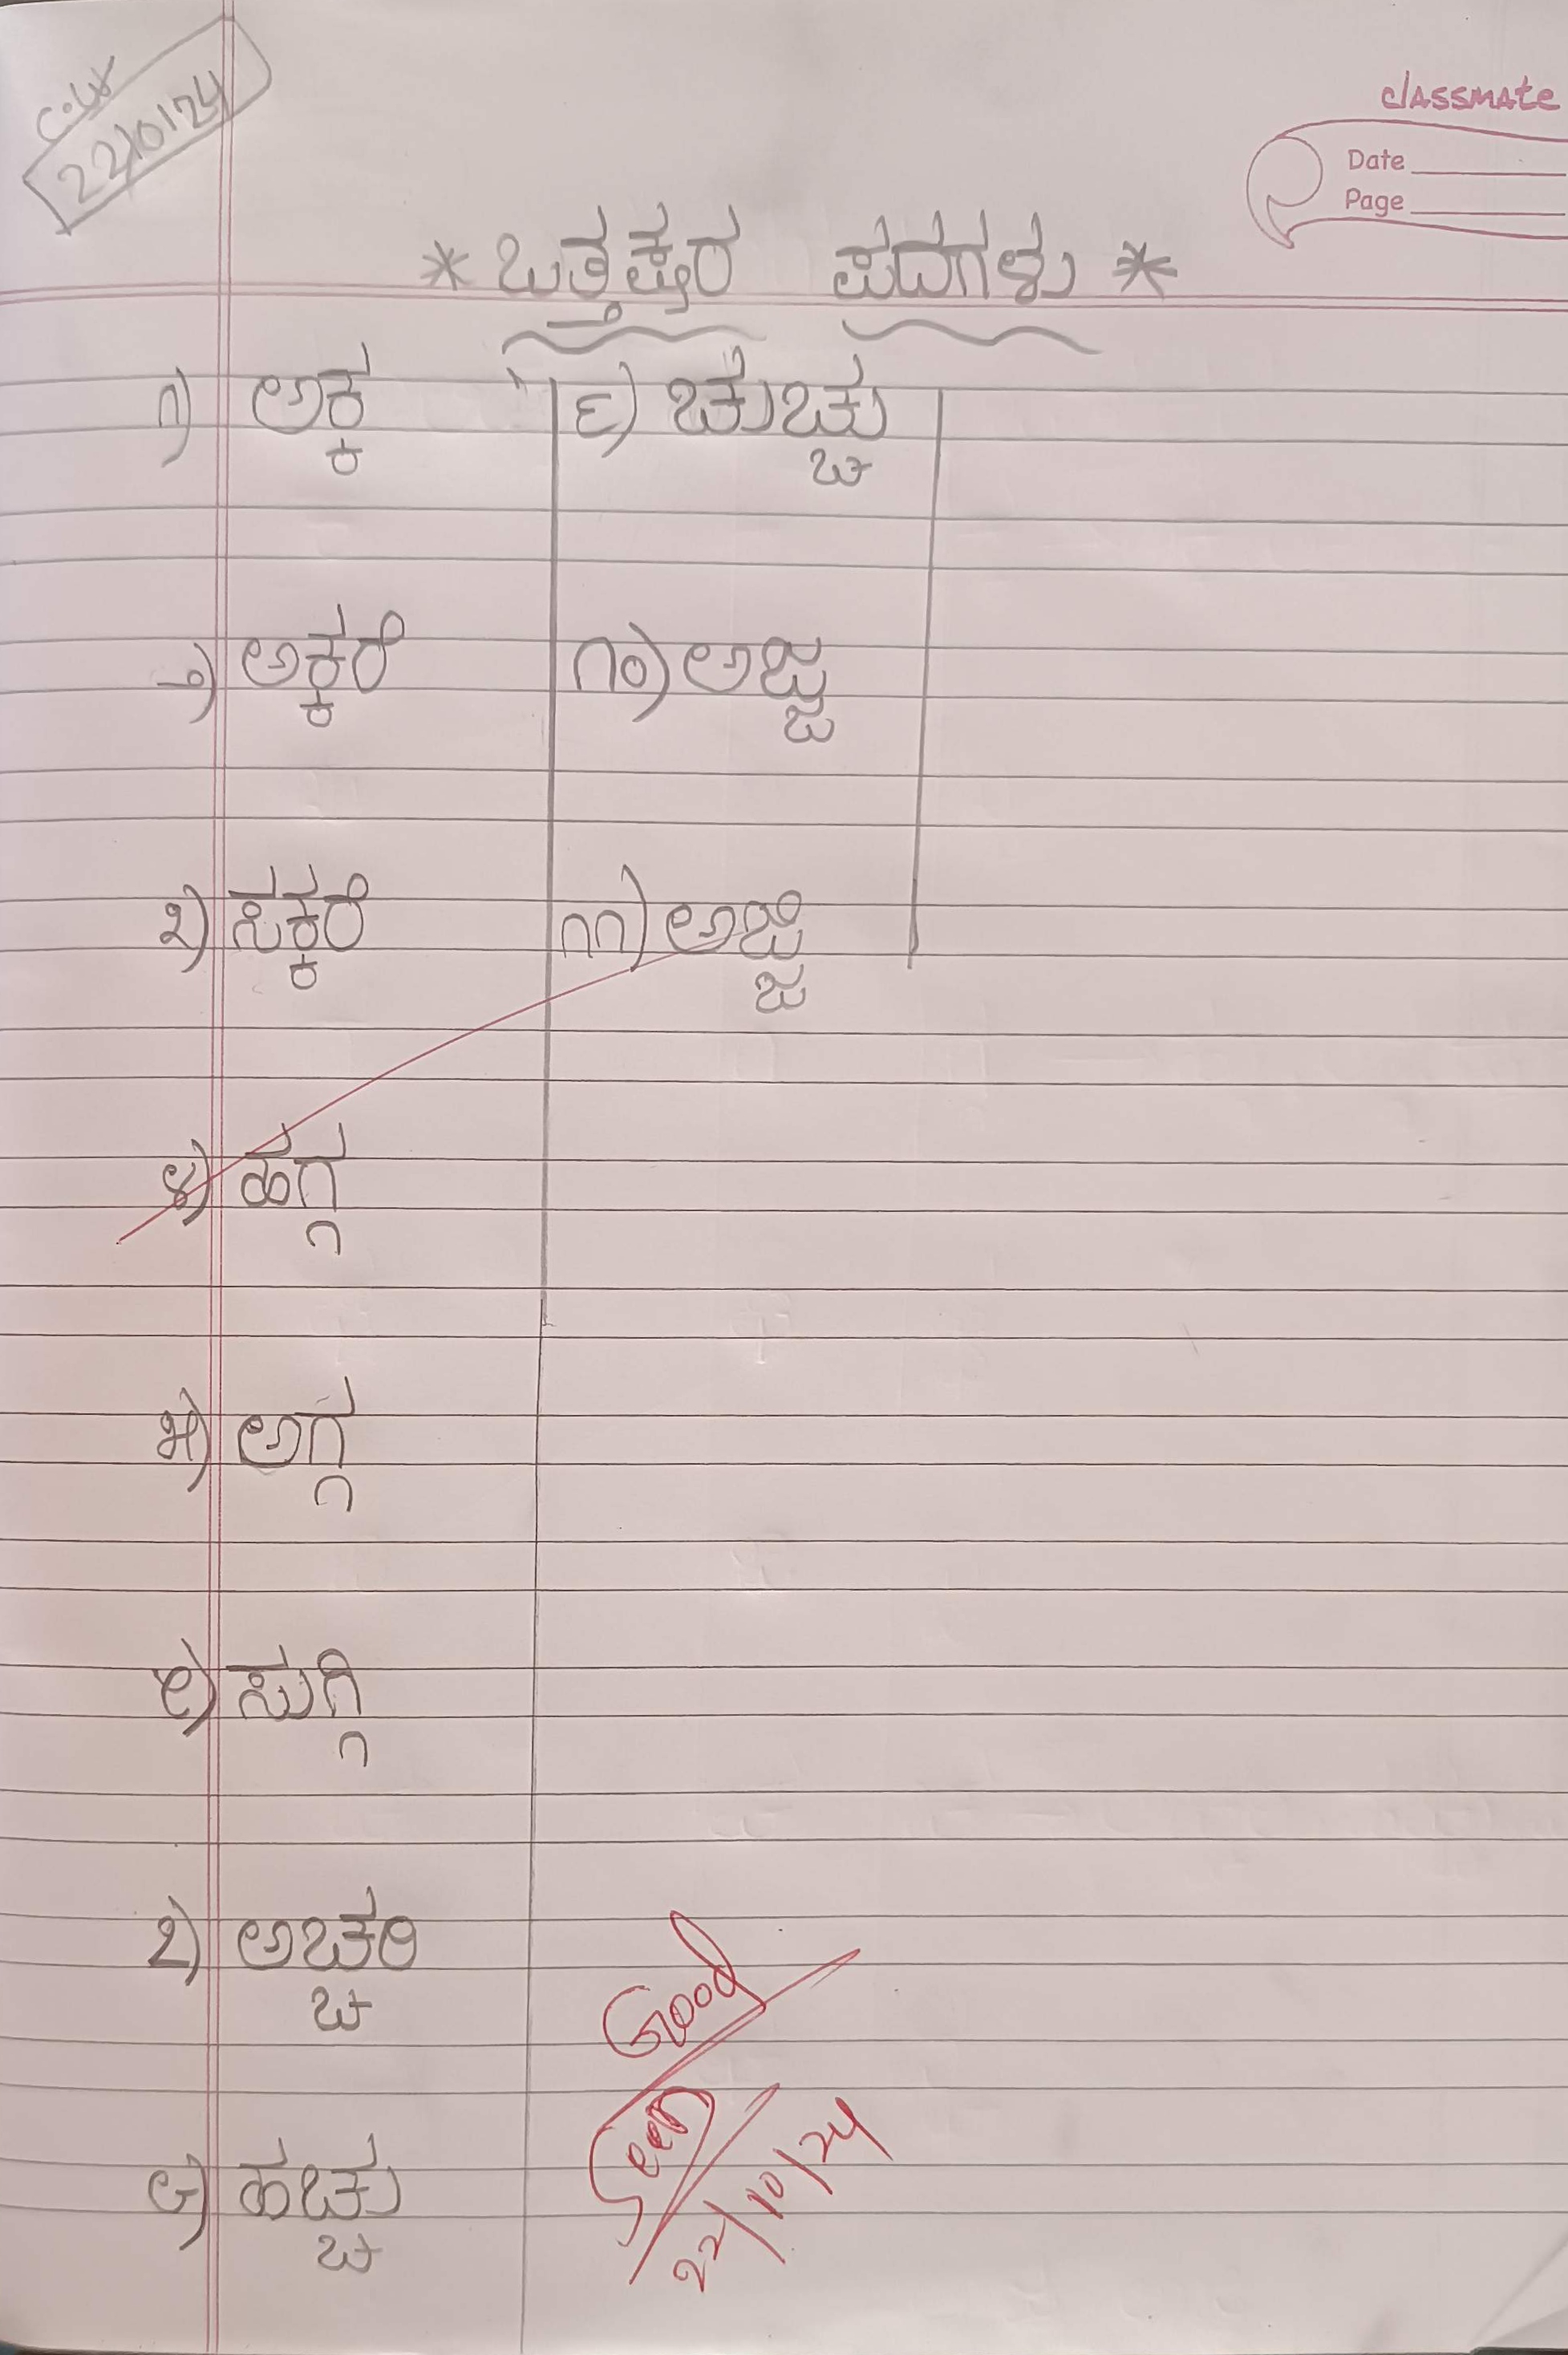 C.W
22/10/24
classmate
Date
Page
* ಒತ್ತಕ್ಷರ ಪದಗಳು *
೧) ಅಕ್ಕ
೨) ಅಕ್ಕರೆ
೩) ಸಕ್ಕರೆ
೪) ಹಗ್ಗ
೫) ಅಗ್ಗ
೬) ಸುಗ್ಗಿ
೭) ಅಚ್ಚರಿ
೮) ಹಚ್ಚು
೯) ಚುಚ್ಚು
೧೦) ಅಜ್ಜ
೧೧) ಅಜ್ಜಿ
Good
Seen
22/10/24